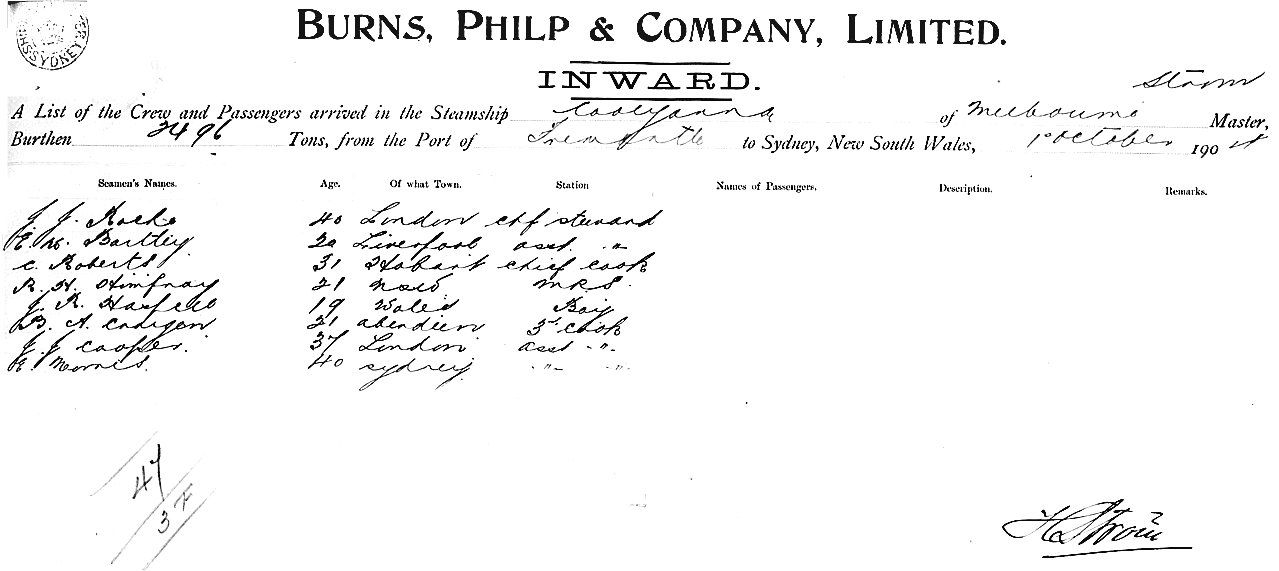 SYDNEY
BURNS, PHILP & COMPANY, LIMITED.
INWARD.
Ström
A List of the Crew and Passengers arrived in the Steamship Coolgardie of Melbourne Master,
Burthen 2496 Tons, from the Port of Fremantle to Sydney, New South Wales, 1st October 190
Seamen's Names. Age. Of what Town. Station Names of Passengers. Description. Remarks.
J. J. Roche 40 London chf steward
E. Bartley 20 Liverpool asst. "
C. Roberts 31 Hobart chief cook
R. H. 21 NSW
J. R. 19 Wales Boy
B. A. 21 aberdeen 3rd cook
J. J. Cooper. 37 London asst "
E. Morris. 40 Sydney " "
47
3 F
H Ström